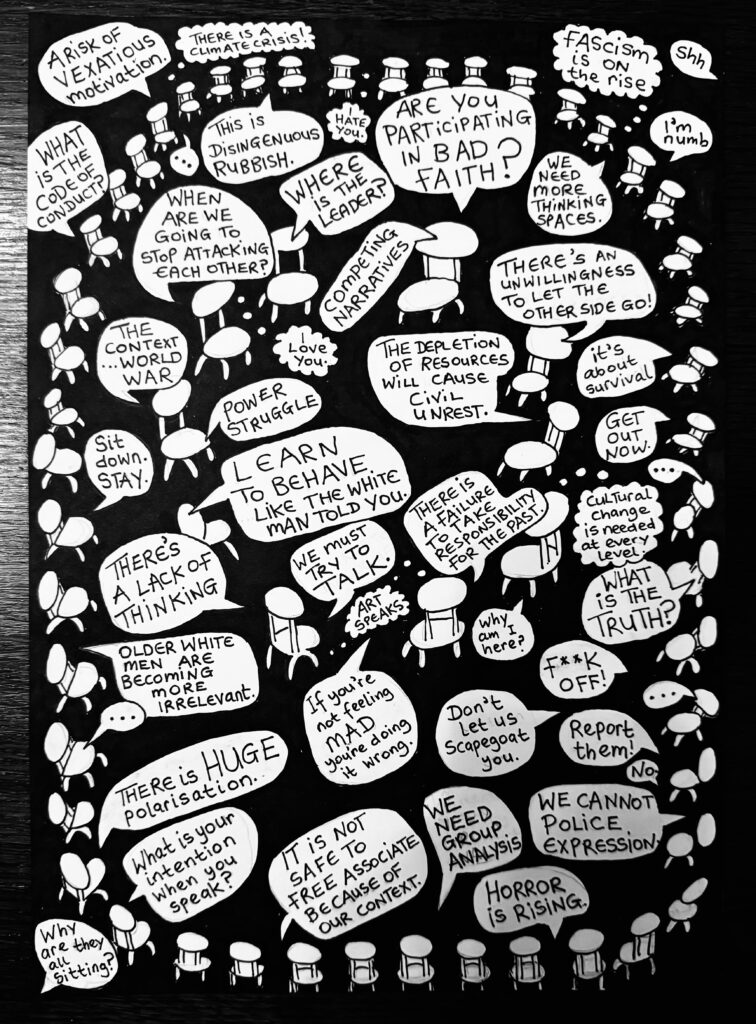 A RISK OF
VEXATIOUS
motivation.
THERE IS A
CLIMATE CRISIS!
FASCISM
is ON
the rise
Shh
I'm
numb
WHAT
is THE
CODE OF
CONDUCT?
...
THIS IS
DISINGENUOUS
RUBBISH.
I
HATE
YOU.
ARE YOU
PARTICIPATING
IN BAD
FAITH?
WE
NEED
MORE
THINKING
SPACES.
WHERE
IS THE
LEADER?
WHEN
ARE WE
GOING TO
STOP ATTACKING
EACH OTHER?
COMPETING
NARRATIVES
THERE'S AN
UNWILLINGNESS
TO LET THE
OTHER SIDE GO!
THE
CONTEXT
...WORLD
WAR
I
LOVE
YOU.
THE DEPLETION
OF RESOURCES
WILL CAUSE
CIVIL
UNREST.
it's
about
survival
POWER
STRUGGLE
GET
OUT
NOW.
Sit
down.
STAY.
LEARN
TO BEHAVE
LIKE THE WHITE
MAN TOLD YOU.
...
THERE IS
A FAILURE
TO TAKE
RESPONSIBILITY
FOR THE PAST.
Cultural
change
is needed
at every
level.
THERE'S
A LACK OF
THINKING
WE MUST
TRY TO
TALK.
ART
SPEAKS
WHAT
IS THE
TRUTH?
why
am I
here?
OLDER WHITE
MEN ARE
BECOMING
MORE
IRRELEVANT.
...
F**K
OFF!
...
If you're
not feeling
MAD
you're doing
it wrong.
Don't
let us
Scapegoat
you.
Report
them!
No.
THERE IS HUGE
polarisation.
What is your
intention
when you
speak?
IT IS NOT
SAFE TO
FREE ASSOCIATE
BECAUSE OF
OUR CONTEXT.
WE
NEED
GROUP
ANALYSIS
WE CANNOT
POLICE
EXPRESSION.
HORROR
is RISING.
Why
are they
all
sitting?